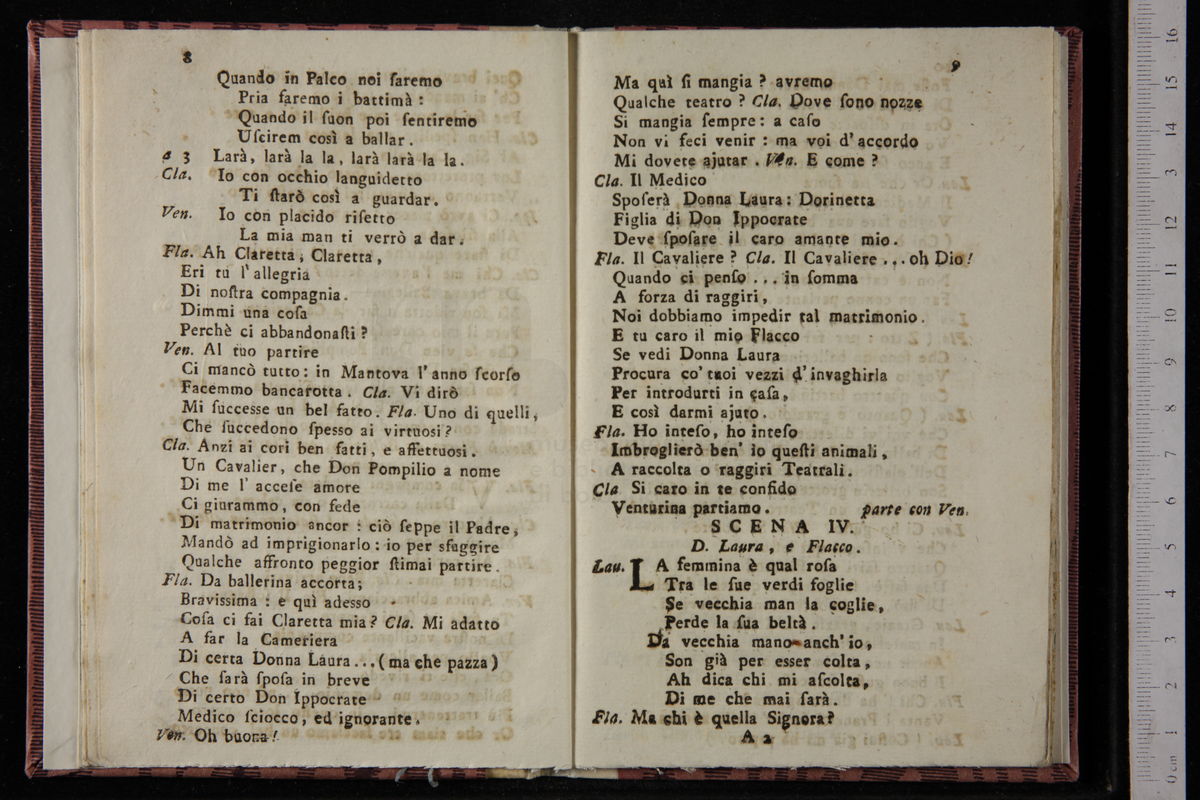 8
Quando in Palco noi faremo
Pria faremo i battimà :
Quando il ſuon poi ſentiremo
Uſcirem così a ballar .
a 3 Larà, larà la la, larà larà la la.
Cla. Io con occhio languidetto
Ti ſtarò così a guardar.
Ven. Io con placido riſetto
La mia man ti verrò a dar.
Fla. Ah Claretta, Claretta,
Eri tu l'allegria
Di noſtra compagnia.
Dimmi una coſa
Perchè ci abbandonaſti ?
Ven. Al tuo partire
Ci mancò tutto: in Mantova l'anno ſcorſo
Facemmo bancarotta . Cla. Vi dirò
Mi ſucceſſe un bel fatto. Fla. Uno di quelli,
Che ſuccedono ſpesso ai virtuosi ?
Cla. Anzi ai cori ben fatti, e affettuosi.
Un Cavalier, che Don Pompilio a nome
Di me l' acceſe amore
Ci giurammo, con fede
Di matrimonio ancor : ciò ſeppe il Padre,
Mandò ad imprigionarlo : io per sfuggire
Qualche affronto peggior ſtimai partire.
Fla. Da ballerina accorta;
Bravissima : e quì adesso
Coſa ci fai Claretta mia? Cla. Mi adatto
A far la Cameriera
Di certa Donna Laura...(ma che pazza)
Che ſarà ſpoſa in breve
Di certo Don Ippocrate
Medico ſciocco, ed ignorante.
Ven. Oh buona!
9
Ma quì ſi mangia ? avremo
Qualche teatro ? Cla. Dove ſono nozze
Si mangia ſempre: a caſo
Non vi feci venir : ma voi d'accordo
Mi dovete ajutar . Ven. E come ?
Cla. Il Medico
Spoſerà Donna Laura: Dorinetta
Figlia di Don Ippocrate
Deve ſpoſare il caro amante mio.
Fla. Il Cavaliere ? Cla. Il Cavaliere ...oh Dio!
Quando ci penſo ... in ſomma
A forza di raggiri,
Noi dobbiamo impedir tal matrimonio.
E tu caro il mio Flacco
Se vedi Donna Laura
Procura co' tuoi vezzi d'invaghirla
Per introdurti in caſa,
E così darmi ajuto.
Fla. Ho inteſo, ho inteſo
Imbroglierò ben' io queſti animali,
A raccolta o raggiri Teatrali.
Cla Si caro in te confido
Venturina partiamo. parte con Ven.
SCENA IV.
D. Laura, e Flacco.
Lau. LA femmina è qual roſa
Tra le ſue verdi foglie
Se vecchia man la coglie,
Perde la ſua beltà.
Da vecchia mano anch'io,
Son già per esser colta,
Ah dica chi mi aſcolta,
Di me che mai ſarà.
Fla. Ma chi è quella Signora?
A 2
0 cm 1 2 3 4 5 6 7 8 9 10 11 12 13 14 15 16